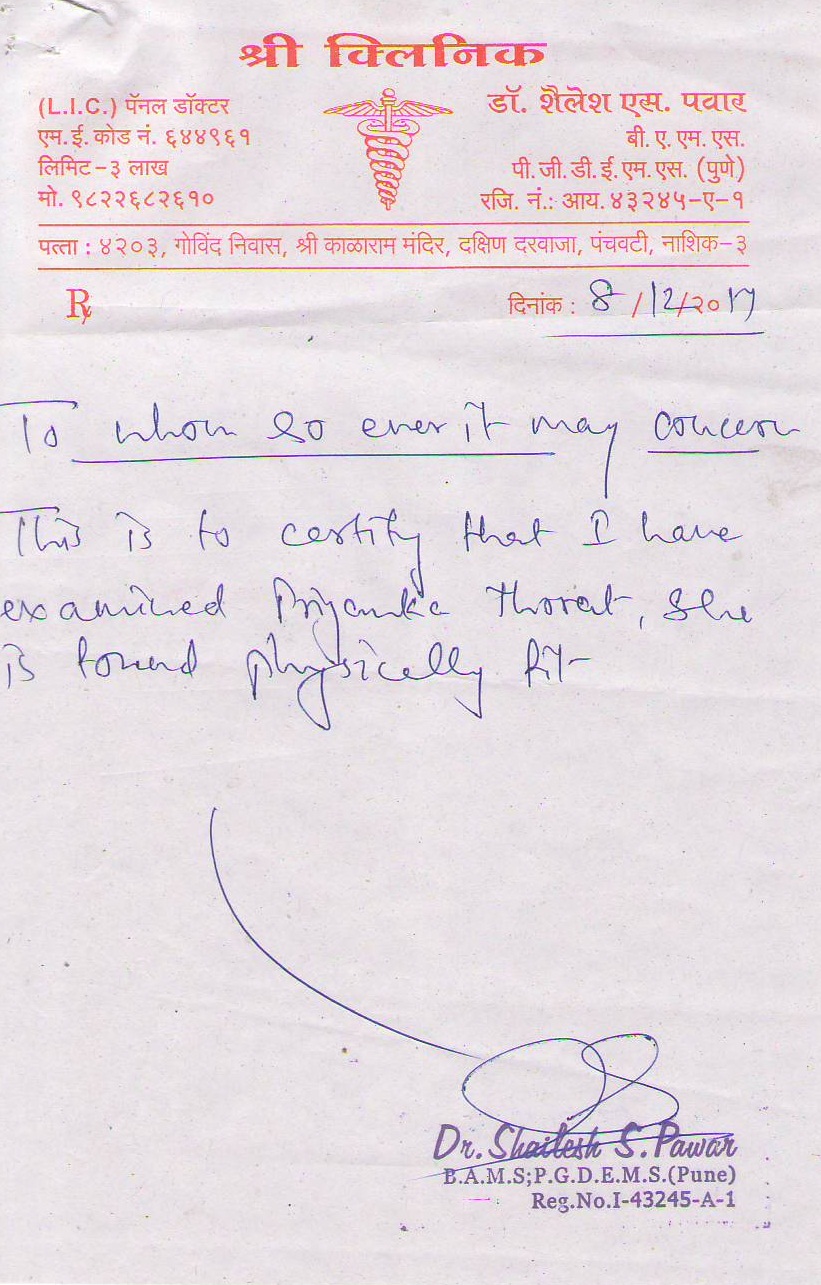 श्री क्लिनिक
(L.I.C.) पॅनल डॉक्टर
एम.ई.कोड नं. ६४४९६१
लिमिट-३ लाख
मो. ९८२२६८२६१०
डॉ. शैलेश एस. पवार
बी. ए. एम. एस.
पी. जी. डी. ई. एम. एस. (पुणे)
रजि. नं.: आय. ४३२४५-ए-१
पत्ता : ४२०३, गोविंद निवास, श्री काळाराम मंदिर, दक्षिण दरवाजा, पंचवटी, नाशिक-३
Rx
दिनांक : 8/12/२०17
To whom so ever it may concern
This is to certify that I have
examined Priyanka Thorat, She
is found physically fit
Dr. Shailesh S. Pawar
B.A.M.S;P.G.D.E.M.S.(Pune)
Reg.No.I-43245-A-1